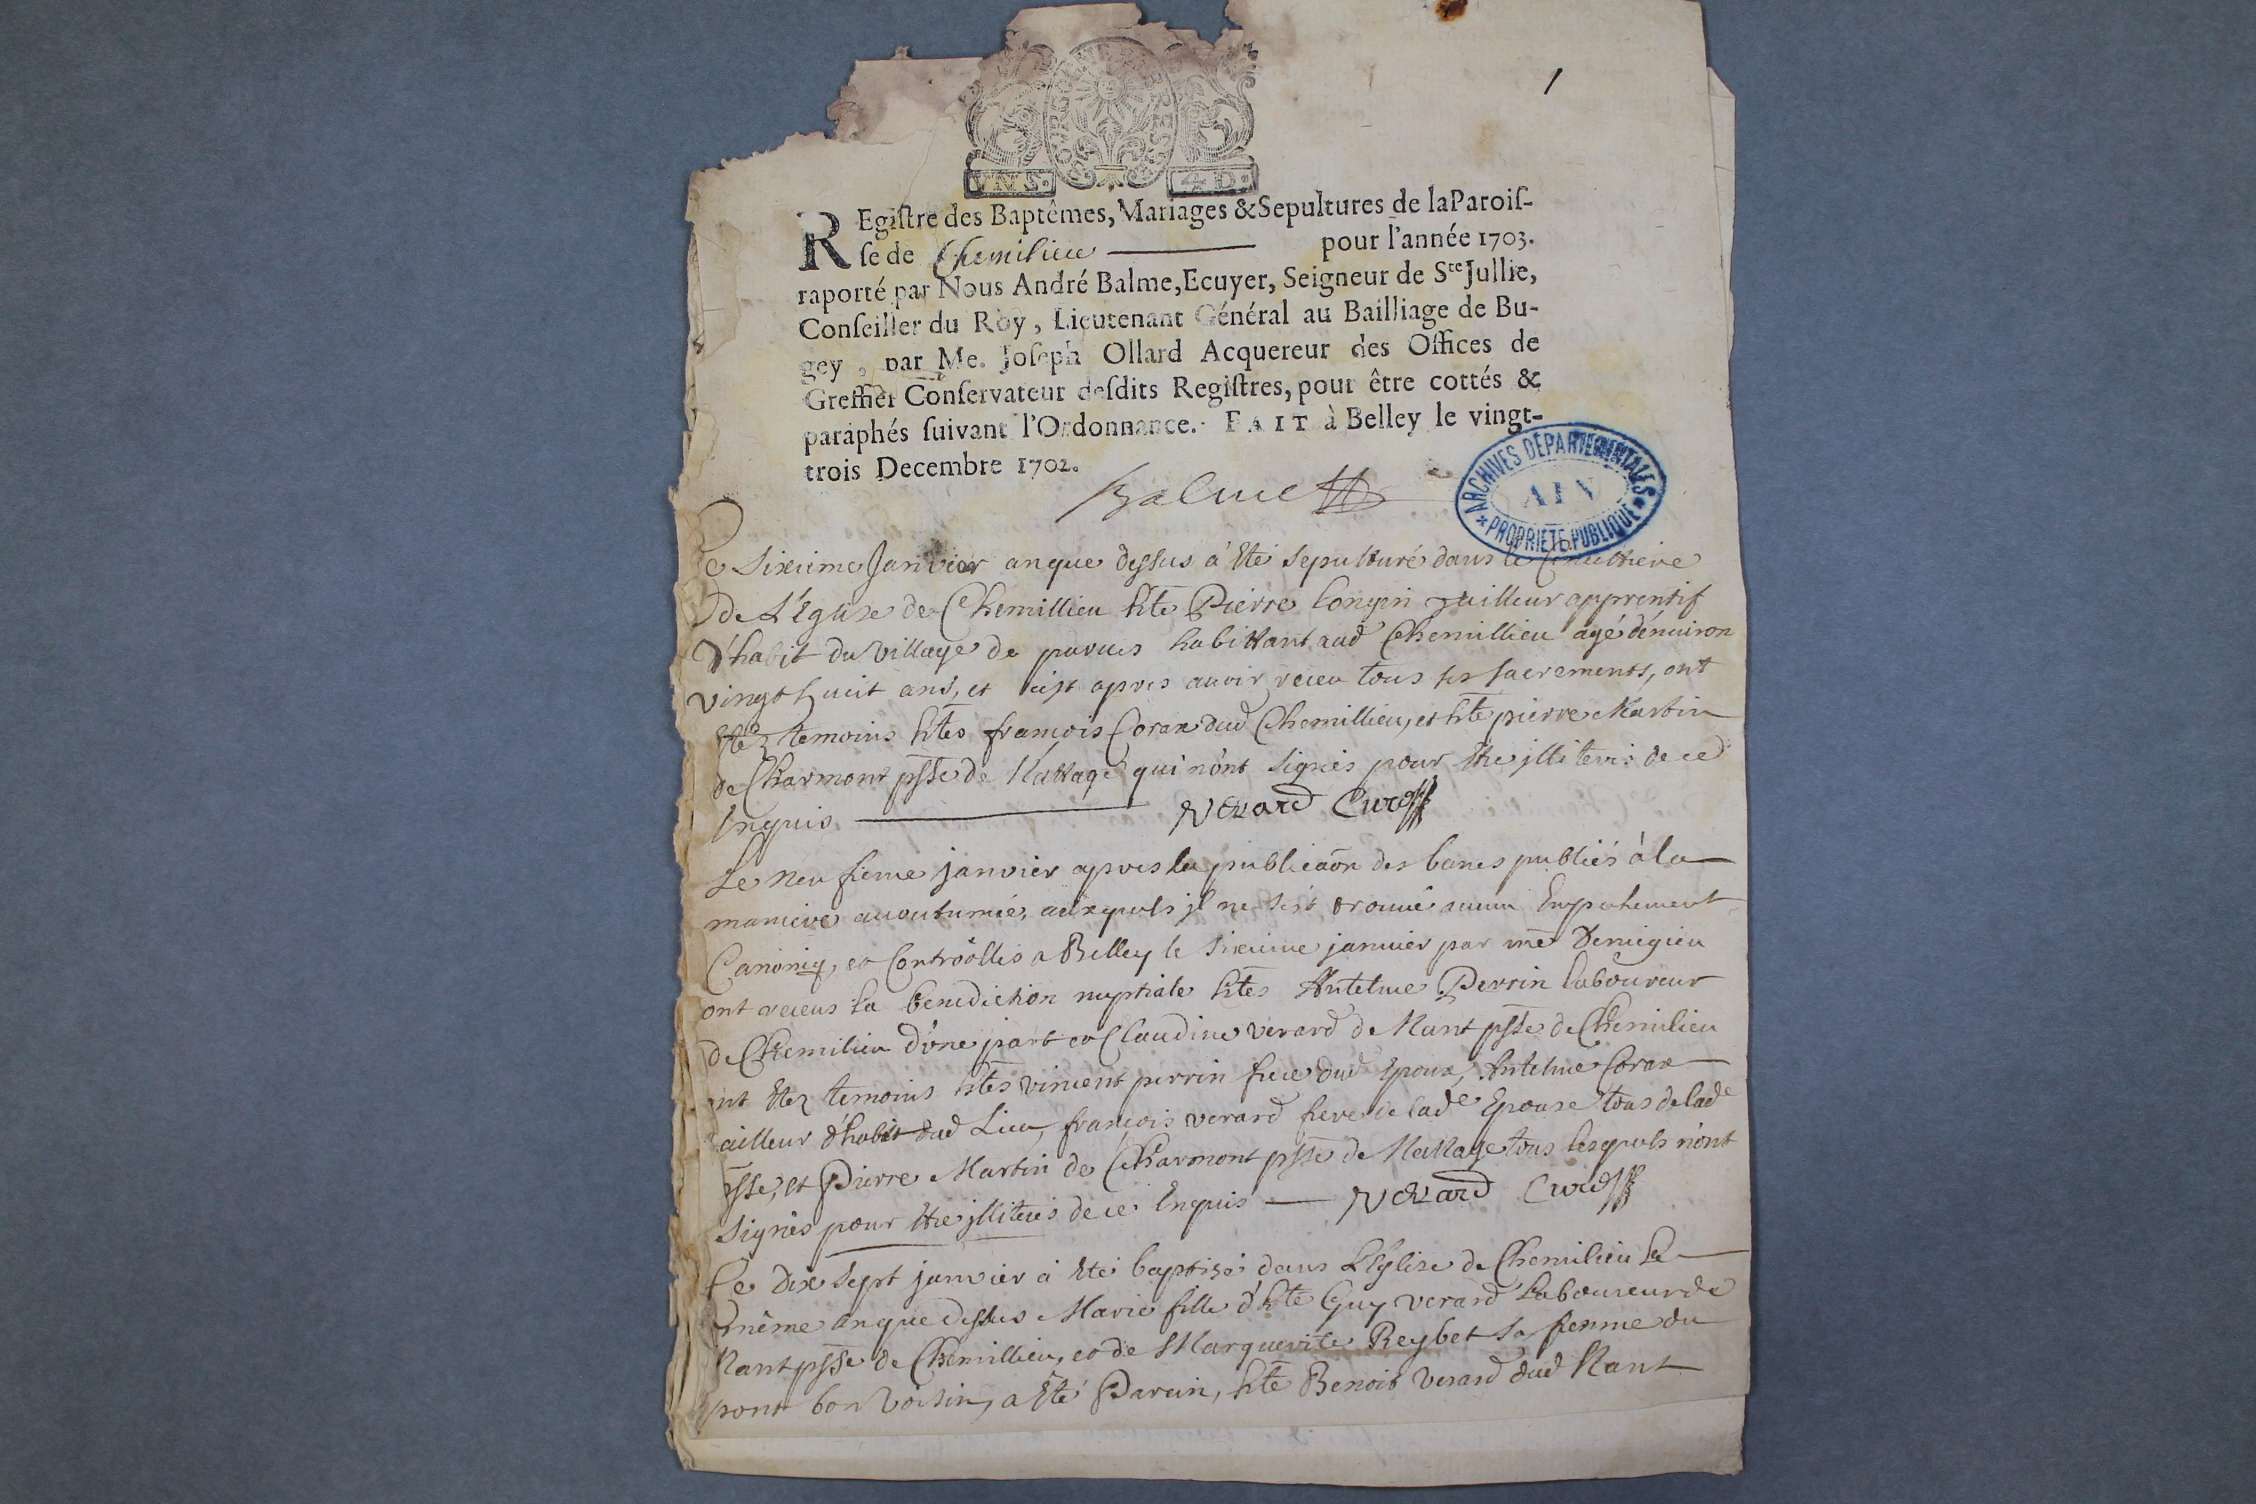 1
4D.
REgiſtre des Baptêmes, Mariages & Sepultures de la Paroiſ-
ſe de Chemilieu pour l'année 1703.
raporté par Nous André Balme, Ecuyer, Seigneur de Ste Jullie,
Conſeiller du Roy, Lieutenant Général au Bailliage de Bu-
gey, par Me. Joſeph Ollard Acquereur des Offices de
Greffier Conſervateur deſdits Regiſtres, pour être cottés &
paraphés ſuivant l'Ordonnance. FAIT à Belley le vingt-
trois Decembre 1702.
Balme
ARCHIVES DÉPARTEMENTALES
AIN
PROPRIÉTÉ PUBLIQUE
Ce sixieme Janvier an que dessus à Eté sepulturé dans le Cimethiere
de L'Eglise de Chemillieu hte Pierre Longin tailleur apprentif
d'habit du Village de habittant aud Chemillieu agé dénuiron
vingt huit ans, et apres auoir receu tous ses sacrements, ont
Etez temoins htes françois Corax dud Chemillieu, et hte pierre Martin
de Charmont psse de Nattage qui n'ont signés pour Etre jlliterés de ce
Enquis Verard Curé
Le neufieme janvier apres la publicaon des bancs publiés à la
maniere auoutumée, auxquels jl ne s'est trouué aucun Empechement
Canoniq, et Controollés a Belley le sixieme januier par me Demigieu
ont receus la benediction nuptiale htes Antelme Perrin laboureur
de Chemilieu d'une part et Claudine verard de Nant psse de Chemilieu
ont Etez temoins htes vincent perrin frere dud Epoux, Antelme Corax
tailleur d'habit dud Lieu, françois verard frere de lade Epouse tous de lade
psse, et Pierre Martin de Charmont psse de Nattage tous lesquels n'ont
signés pour Etre jlliterés de ce Enquis Verard Curé
Ce Dix sept janvier à Eté baptisé dans L'Eglise de Chemilieu le
même an que dessus Marie fille d'hte Guy verard laboureur de
Nant psse de Chemillieu, et de Marguerite Reybet sa femme du
pont bon Voisin, a Eté Parein, hte Benoit verard dud Nant